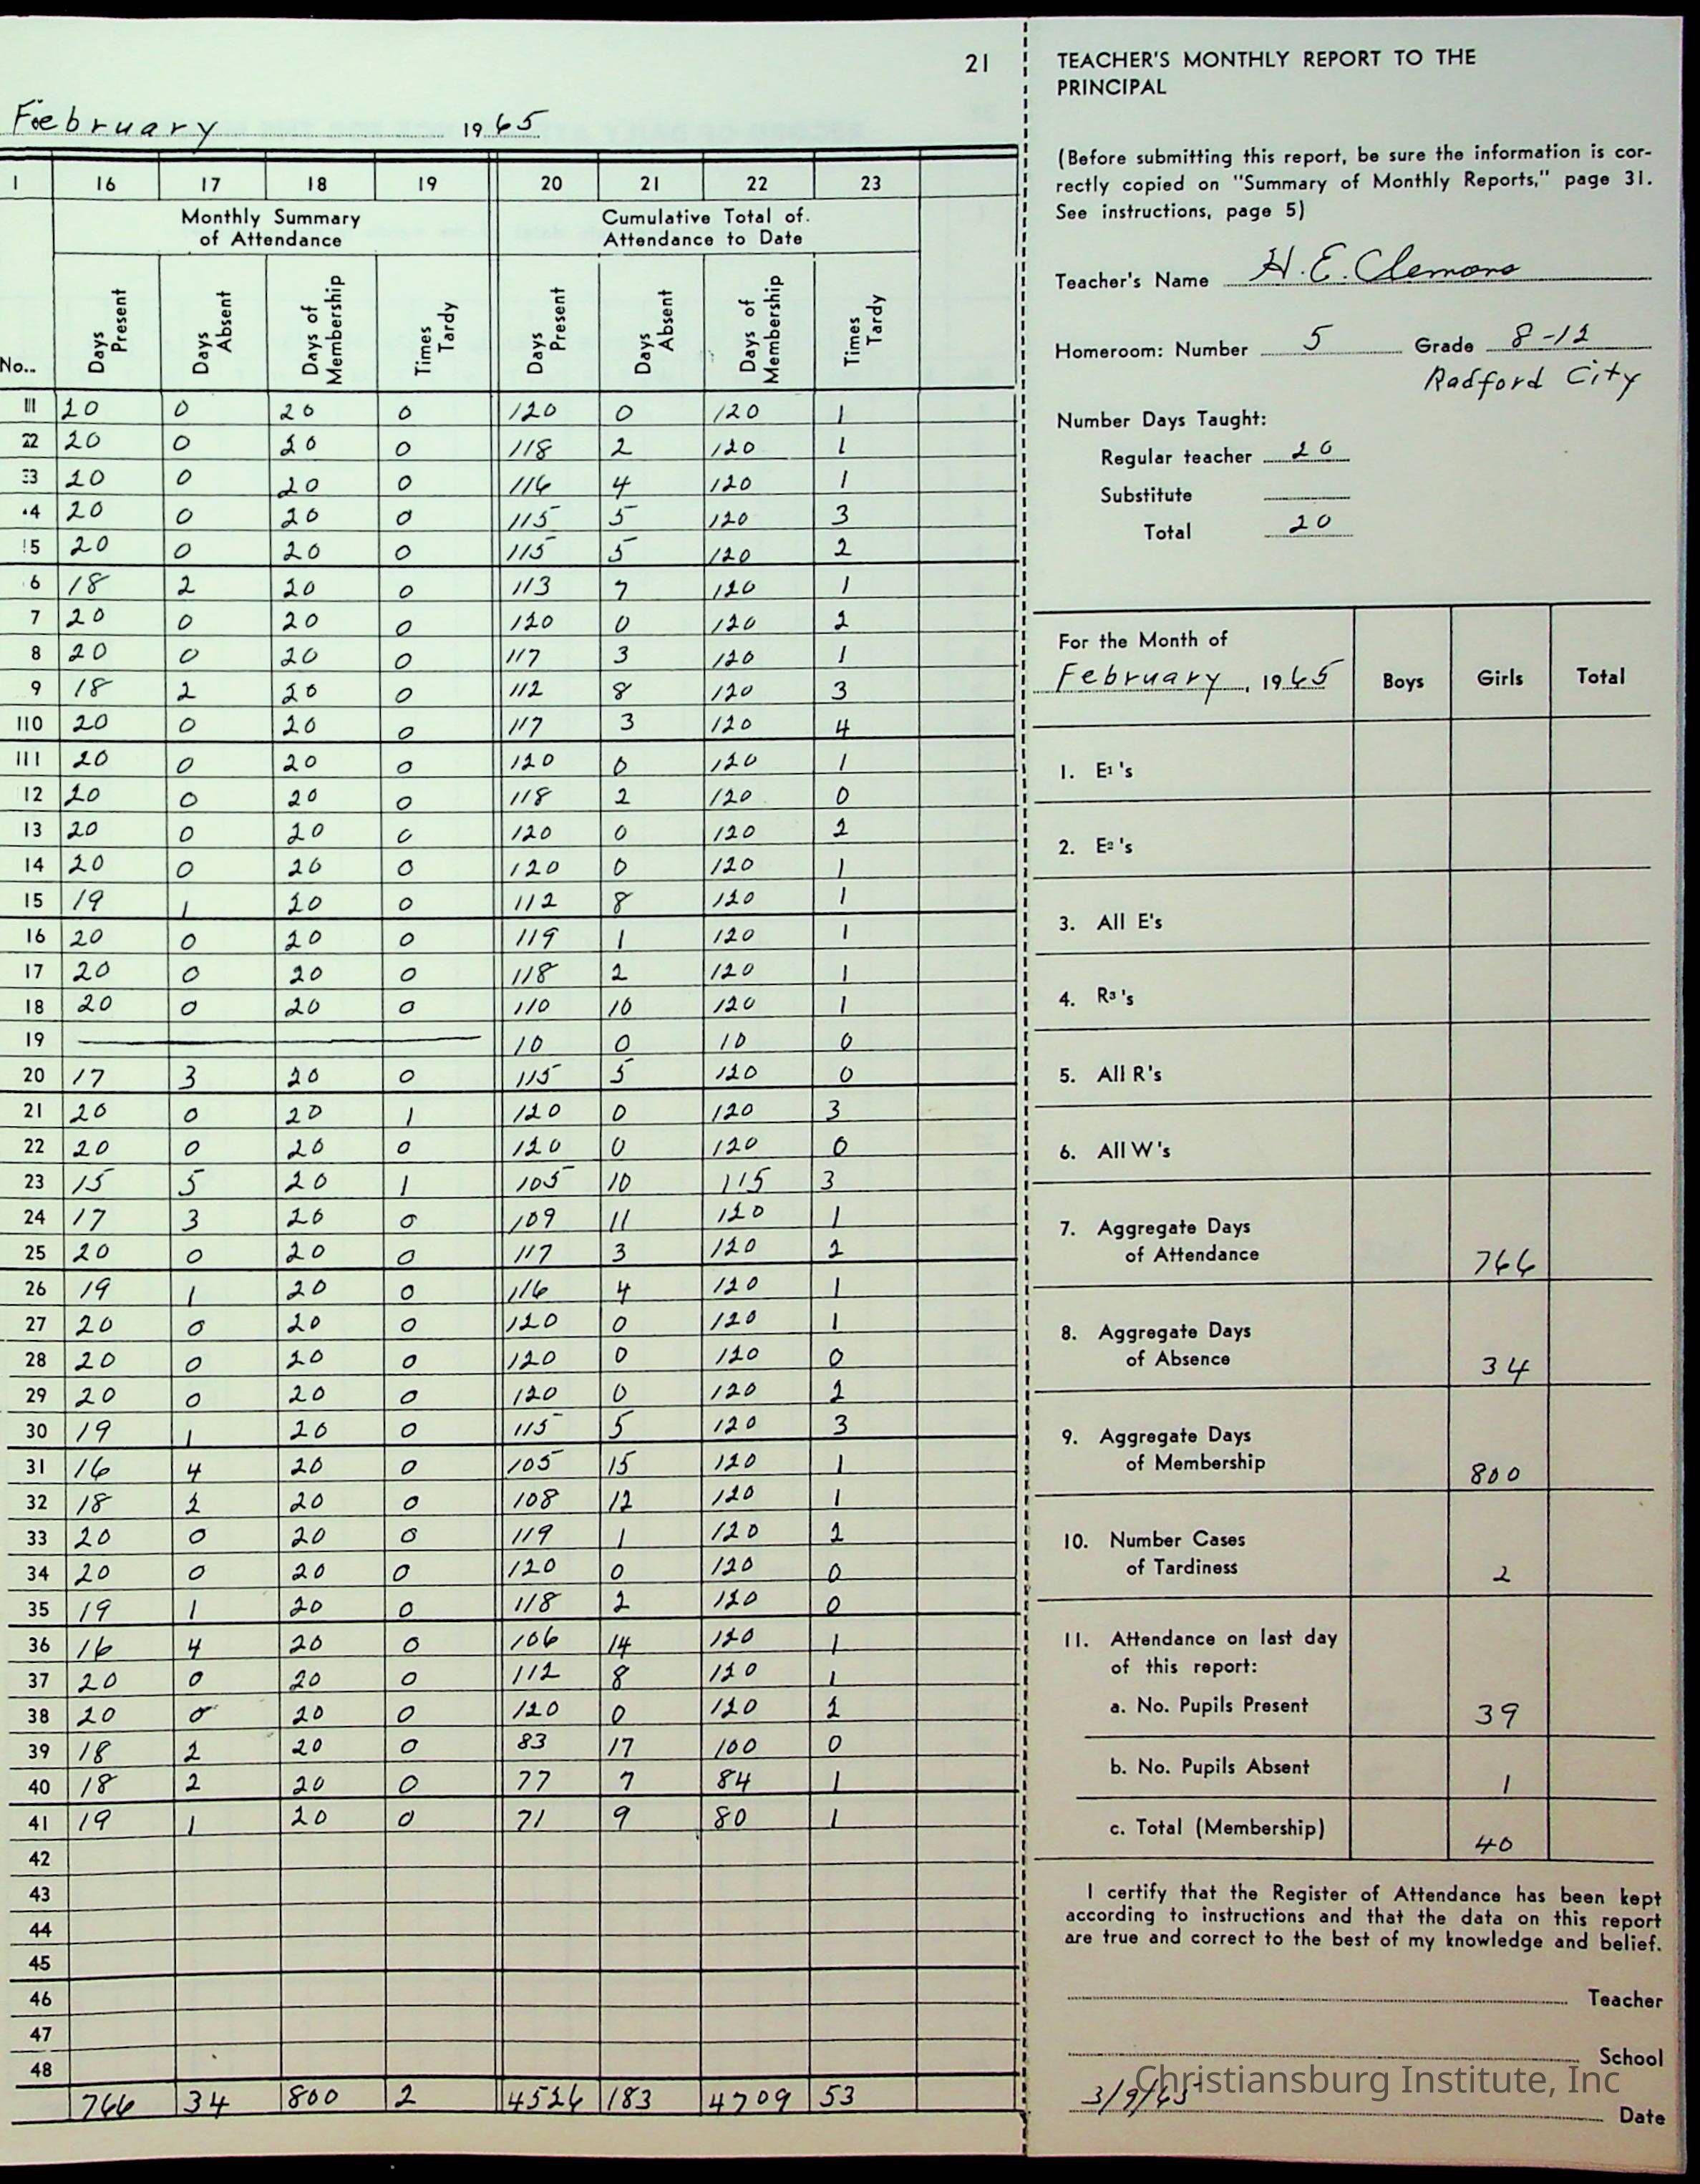 21
February 1965
I 16 17 18 19 20 21 22 23
Monthly Summary of Attendance Cumulative Total of Attendance to Date
No. Days Present Days Absent Days of Membership Times Tardy Days Present Days Absent Days of Membership Times Tardy
1 20 0 20 0 120 0 120 1
2 20 0 20 0 118 2 120 1
3 20 0 20 0 116 4 120 1
4 20 0 20 0 115 5 120 3
5 20 0 20 0 115 5 120 2
6 18 2 20 0 113 7 120 1
7 20 0 20 0 120 0 120 2
8 20 0 20 0 117 3 120 1
9 18 2 20 0 112 8 120 3
10 20 0 20 0 117 3 120 4
11 20 0 20 0 120 0 120 1
12 20 0 20 0 118 2 120 0
13 20 0 20 0 120 0 120 2
14 20 0 20 0 120 0 120 1
15 19 1 20 0 112 8 120 1
16 20 0 20 0 119 1 120 1
17 20 0 20 0 118 2 120 1
18 20 0 20 0 110 10 120 1
19 10 0 10 0
20 17 3 20 0 115 5 120 0
21 20 0 20 1 120 0 120 3
22 20 0 20 0 120 0 120 0
23 15 5 20 1 105 10 115 3
24 17 3 20 0 109 11 120 1
25 20 0 20 0 117 3 120 2
26 19 1 20 0 116 4 120 1
27 20 0 20 0 120 0 120 1
28 20 0 20 0 120 0 120 0
29 20 0 20 0 120 0 120 2
30 19 1 20 0 115 5 120 3
31 16 4 20 0 105 15 120 1
32 18 2 20 0 108 12 120 1
33 20 0 20 0 119 1 120 2
34 20 0 20 0 120 0 120 0
35 19 1 20 0 118 2 120 0
36 16 4 20 0 106 14 120 1
37 20 0 20 0 112 8 120 1
38 20 0 20 0 120 0 120 2
39 18 2 20 0 83 17 100 0
40 18 2 20 0 77 7 84 1
41 19 1 20 0 71 9 80 1
42
43
44
45
46
47
48
766 34 800 2 4526 183 4709 53
TEACHER'S MONTHLY REPORT TO THE
PRINCIPAL
(Before submitting this report, be sure the information is cor-
rectly copied on "Summary of Monthly Reports," page 31.
See instructions, page 5)
Teacher's Name H. E. Clemons
Homeroom: Number 5 Grade 8-12
Radford City
Number Days Taught:
Regular teacher 20
Substitute
Total 20
For the Month of
February, 1965 Boys Girls Total
1. E1's
2. E2's
3. All E's
4. R3's
5. All R's
6. All W's
7. Aggregate Days
of Attendance 766
8. Aggregate Days
of Absence 34
9. Aggregate Days
of Membership 800
10. Number Cases
of Tardiness 2
11. Attendance on last day
of this report:
a. No. Pupils Present 39
b. No. Pupils Absent 1
c. Total (Membership) 40
I certify that the Register of Attendance has been kept
according to instructions and that the data on this report
are true and correct to the best of my knowledge and belief.
Teacher
School
Christiansburg Institute, Inc
3/9/65 Date